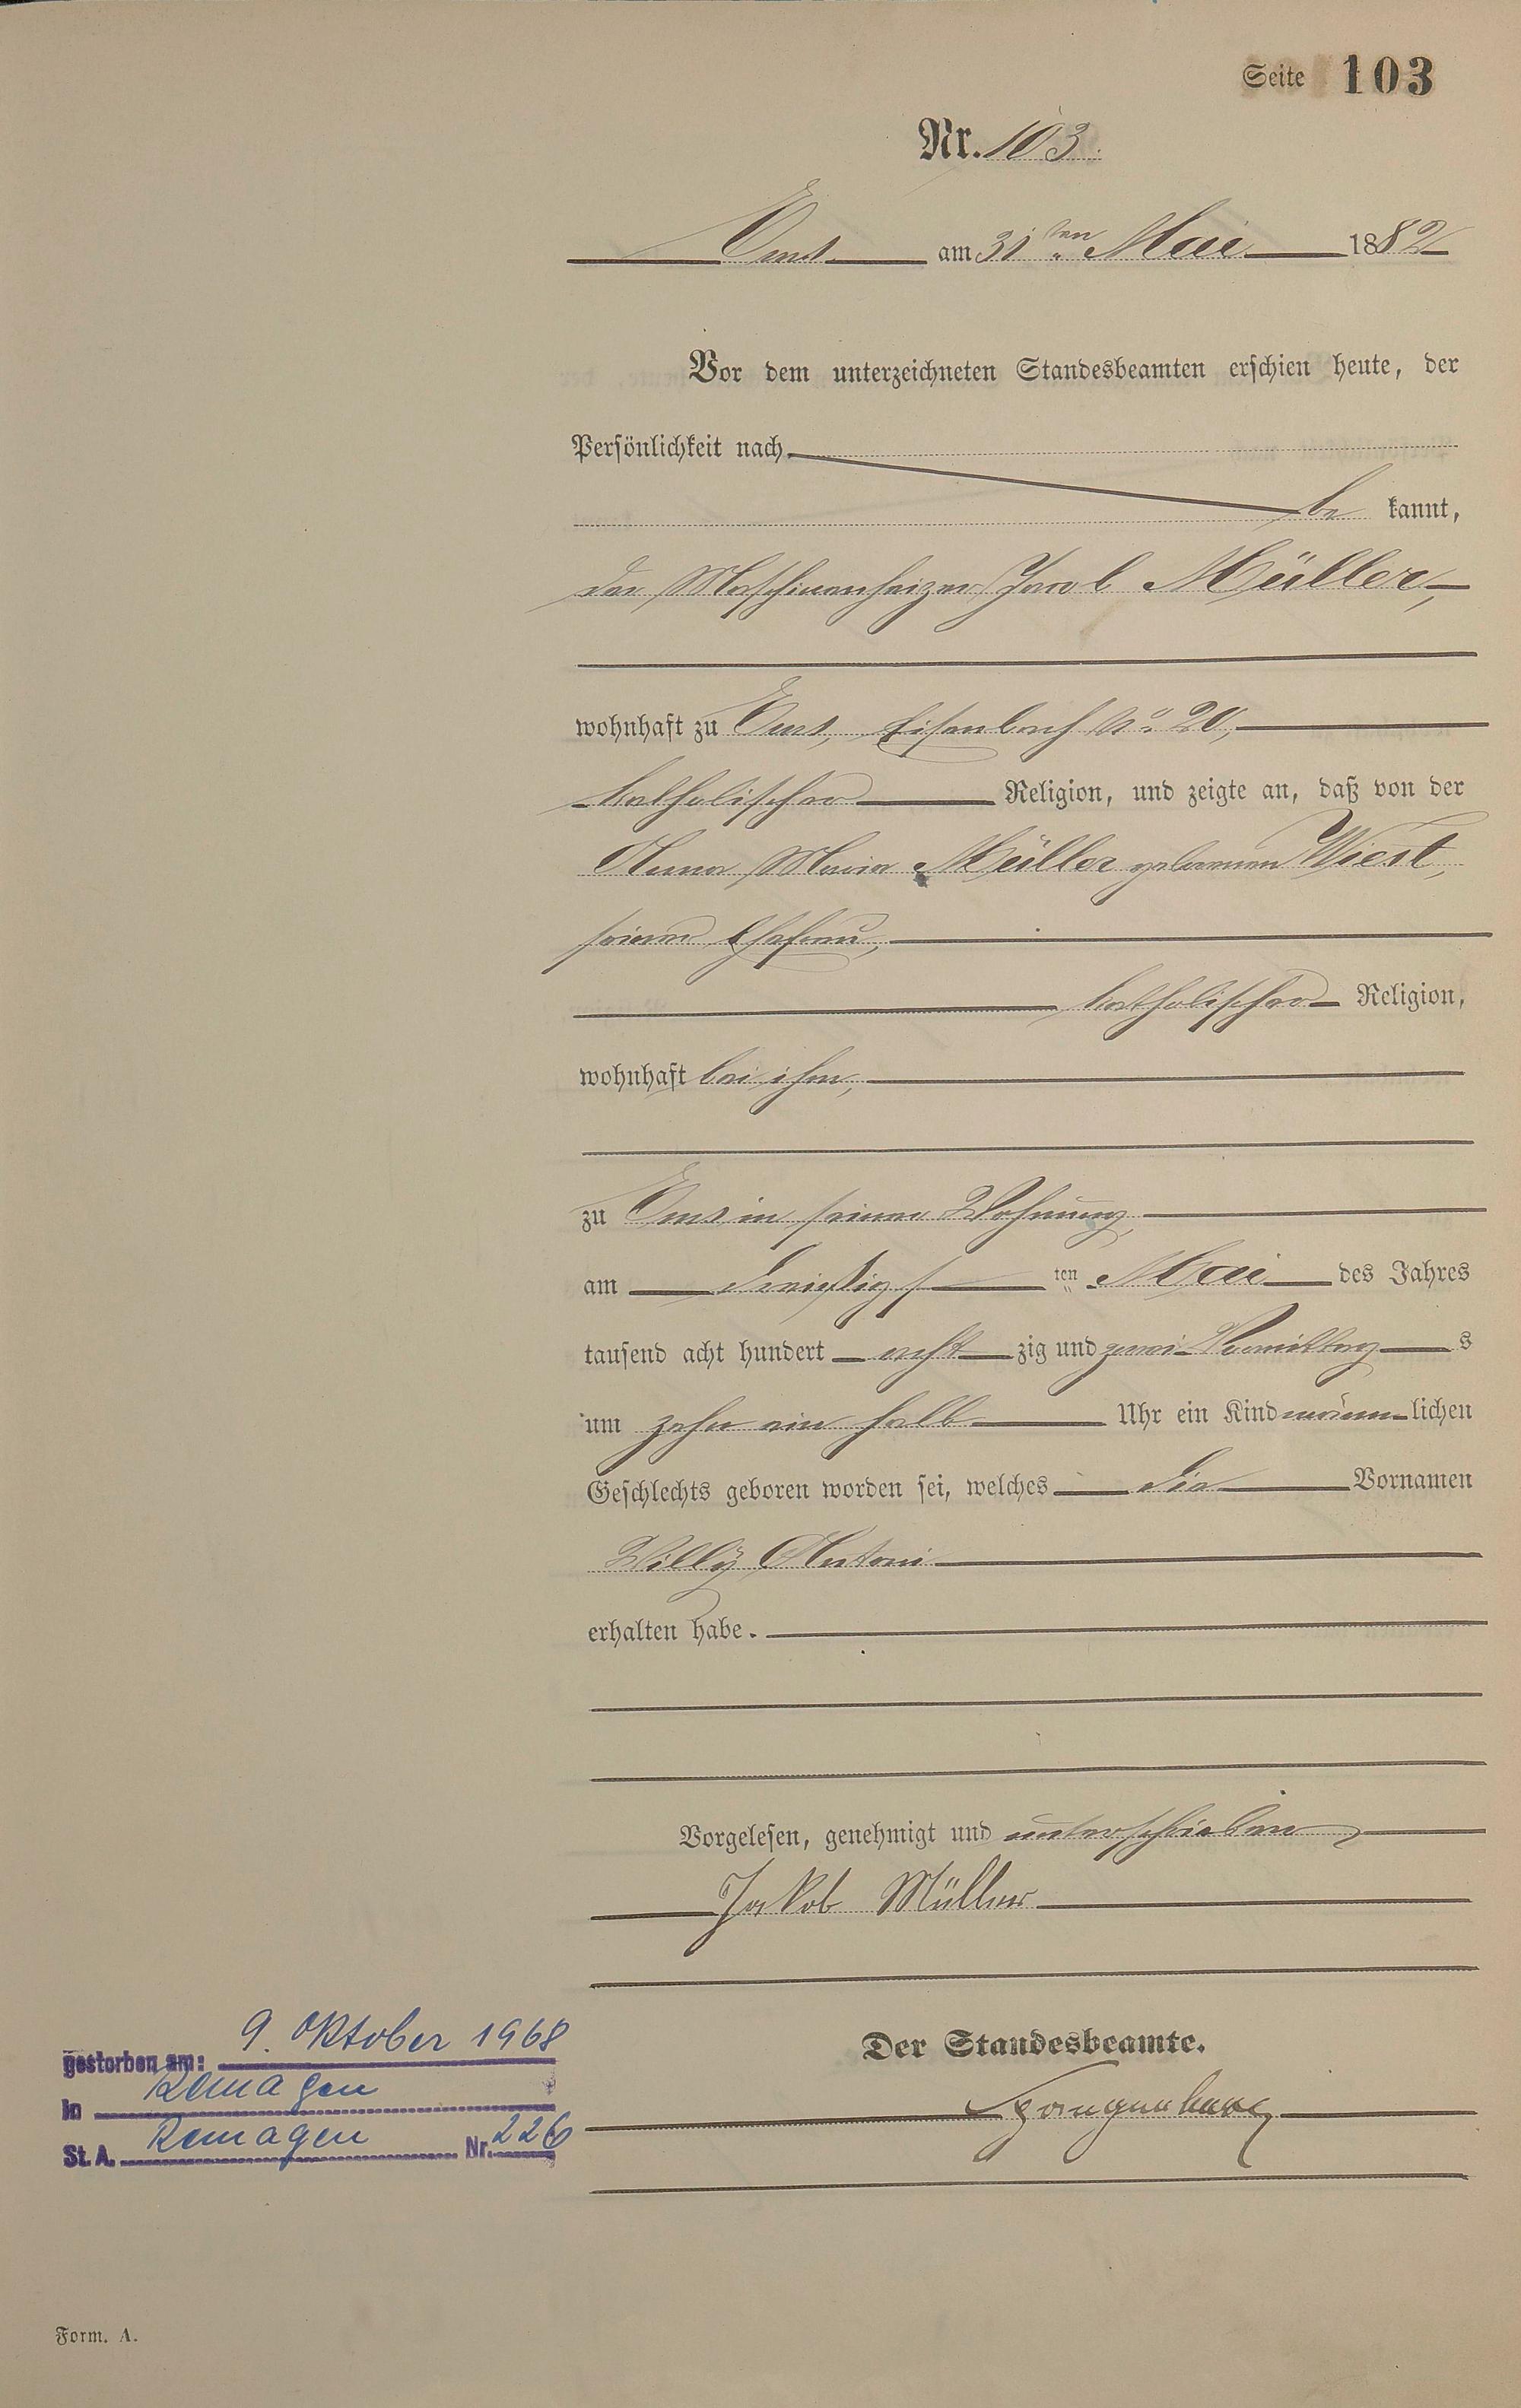 Seite 103
Nr. 103.
Ems am 31ten Mai 1882
Vor dem unterzeichneten Standesbeamten erschien heute, der
Persönlichkeit nach
be kannt,
der Maschinenheizer Jacob Müller,
wohnhaft zu Ems, Eisenbach No. 20,
katholischer Religion, und zeigte an, daß von der
Anna Maria Müller geborenen Wiest,
seiner Ehefrau,
katholischer Religion,
wohnhaft bei ihm,
zu Ems in seiner Wohnung,
am dreißigs ten Mai des Jahres
tausend acht hundert acht zig und zwei Vormittag s
um zehn ein halb Uhr ein Kind männ lichen
Geschlechts geboren worden sei, welches die Vornamen
Willy Antoni
erhalten habe.
Vorgelesen, genehmigt und unterschrieben
Jakob Müller
Der Standesbeamte.
Spangenberg
gestorben am: 9. Oktober 1968
in Remagen
St. A. Remagen Nr. 226
Form. A.